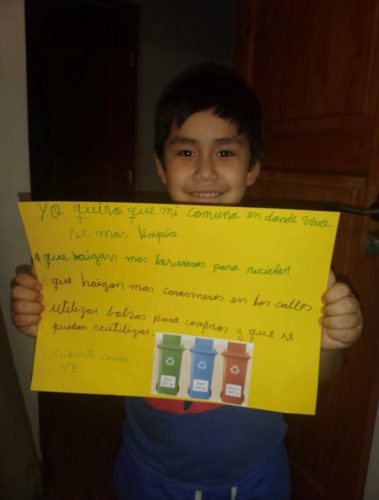 Yo quiro que mi comuna en donde vivo
se mas limpio
que haigan mas basureros para reciclar
que haigan mas caravineros en las calles
utilizar bolsas para compras y que se
puedan reutilizar.
Vicente